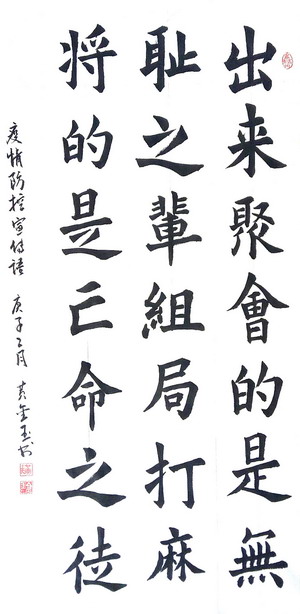 出来聚會的是無
耻之輩組局打麻
将的是亡命之徒
疫情防控宣传语 庚子二月